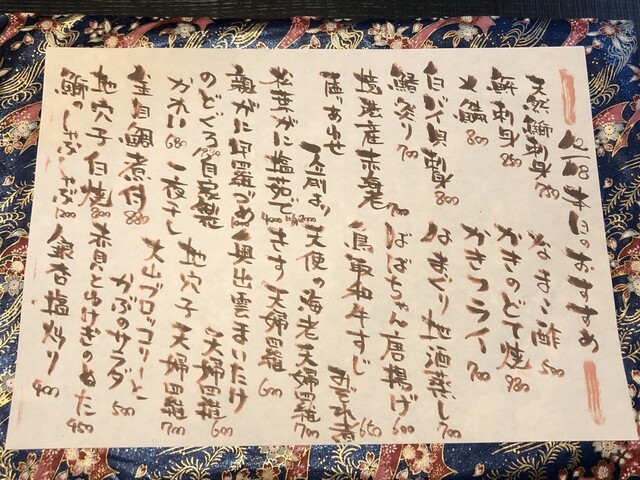 12/18 本日のおすすめ
天然鰤刺身 750
なまこ酢 500
鮃刺身 850
かきのどて焼 980
〆鯖 800
かきフライ 700
白バイ貝刺身 800
はまぐり地酒蒸し 700
鯖炙り 700
ばばちゃん唐揚げ 600
境港産赤海老 700
鳥取和牛すじ みぞれ煮 650
盛り合せ 二人前より
天使の海老天婦羅 700
松葉がに塩茹で 4000
きす天婦羅 600
親がに甲羅づめ
奥出雲まいたけ 天婦羅 600
のどぐろ 自家製
かれい 680 一夜干し
地穴子天婦羅 700
金目鯛煮付 880
大山ブロッコリーと
かぶのサラダ 500
地穴子白焼 800
赤貝とわけぎのぬた 450
鰤のしゃぶしゃぶ 1200
銀杏塩炒り 400